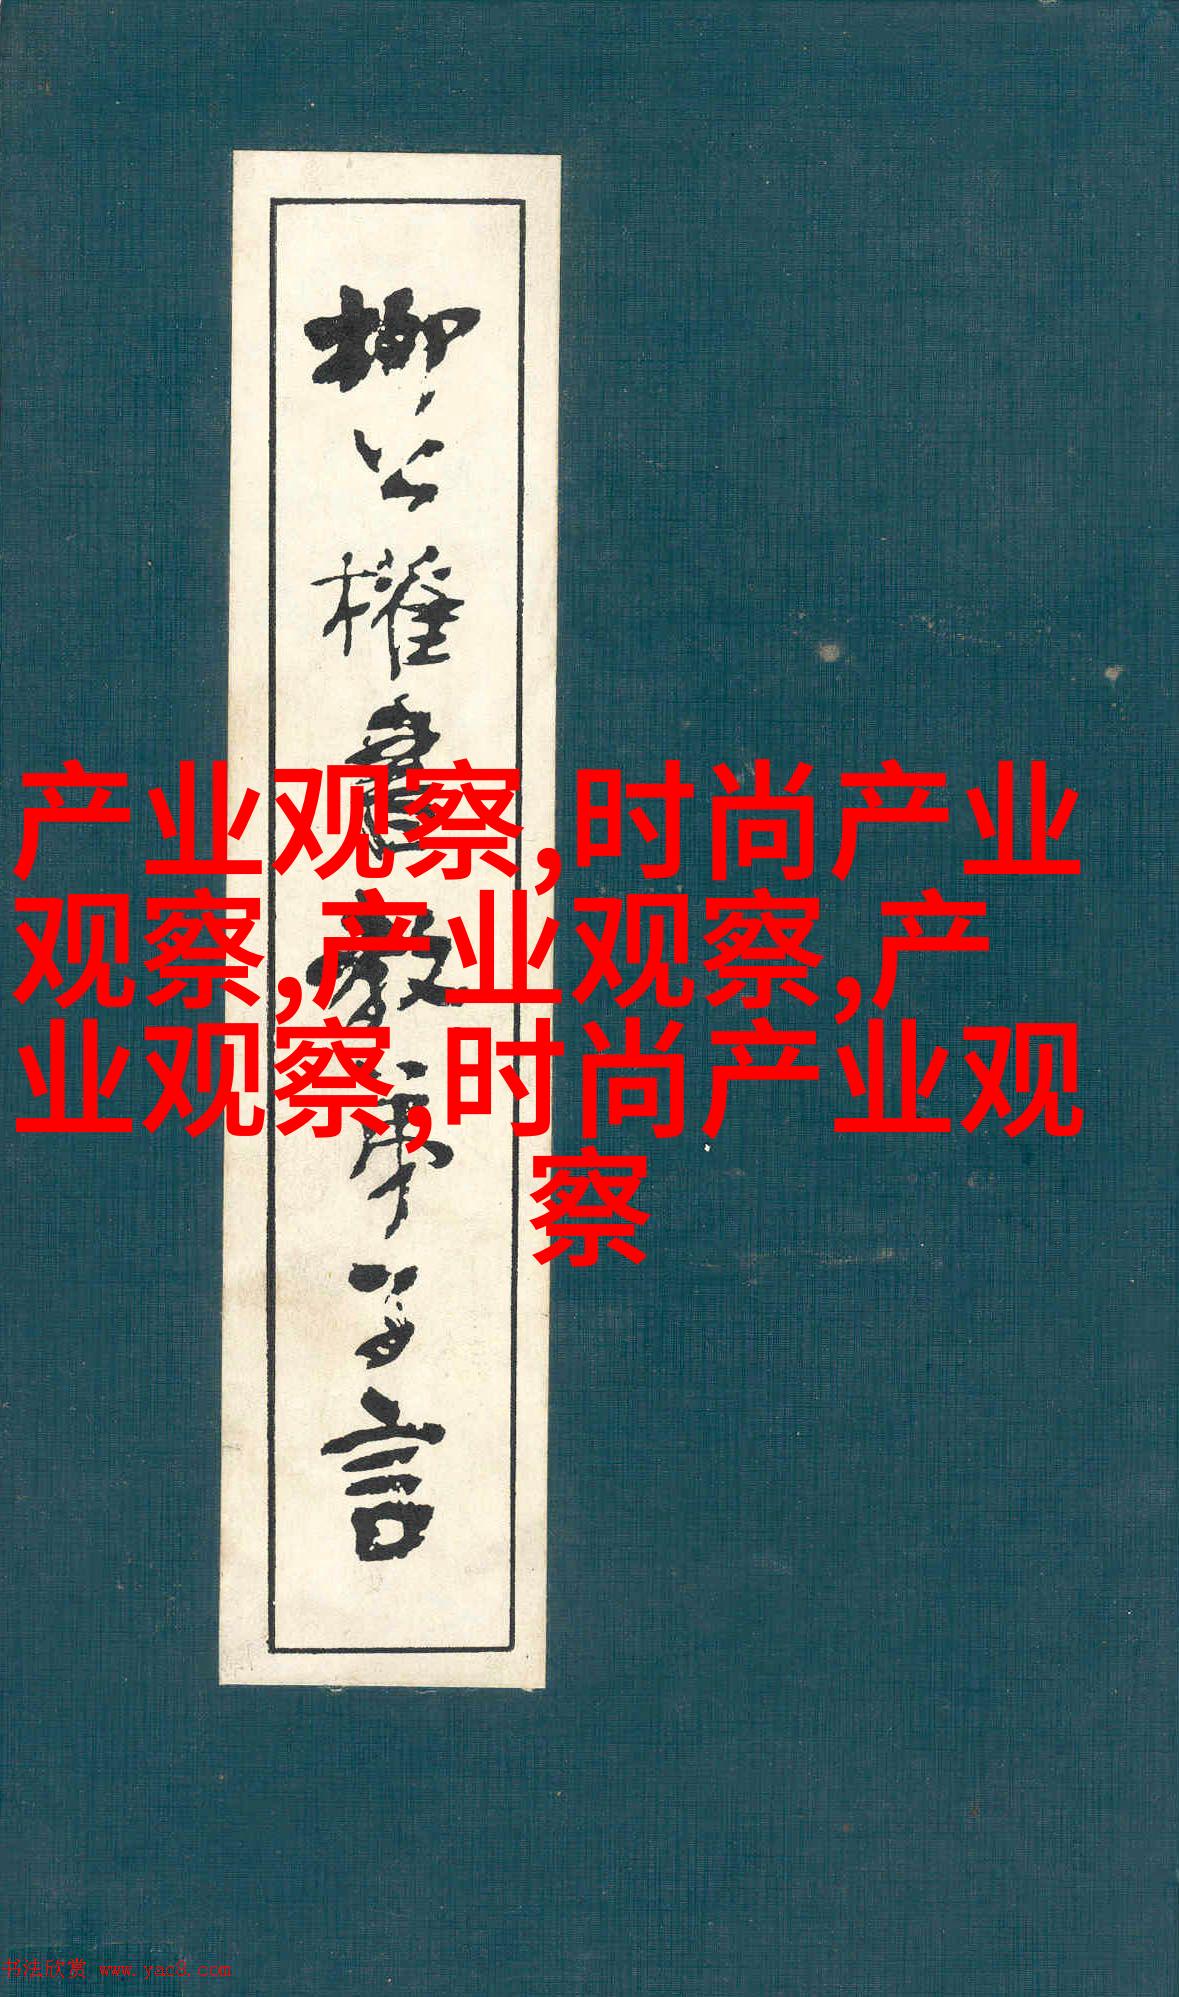 柳公權書教弟子言
产业观察,时尚产业
观察,产业观察,产
业观察,时尚产业观
察
书法欣赏 www.yac8.com